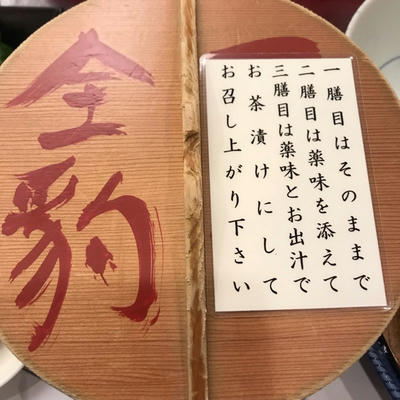 一膳目はそのままで
二膳目は薬味を添えて
三膳目は薬味とお出汁で
お茶漬けにして
お召し上がり下さい
全豹